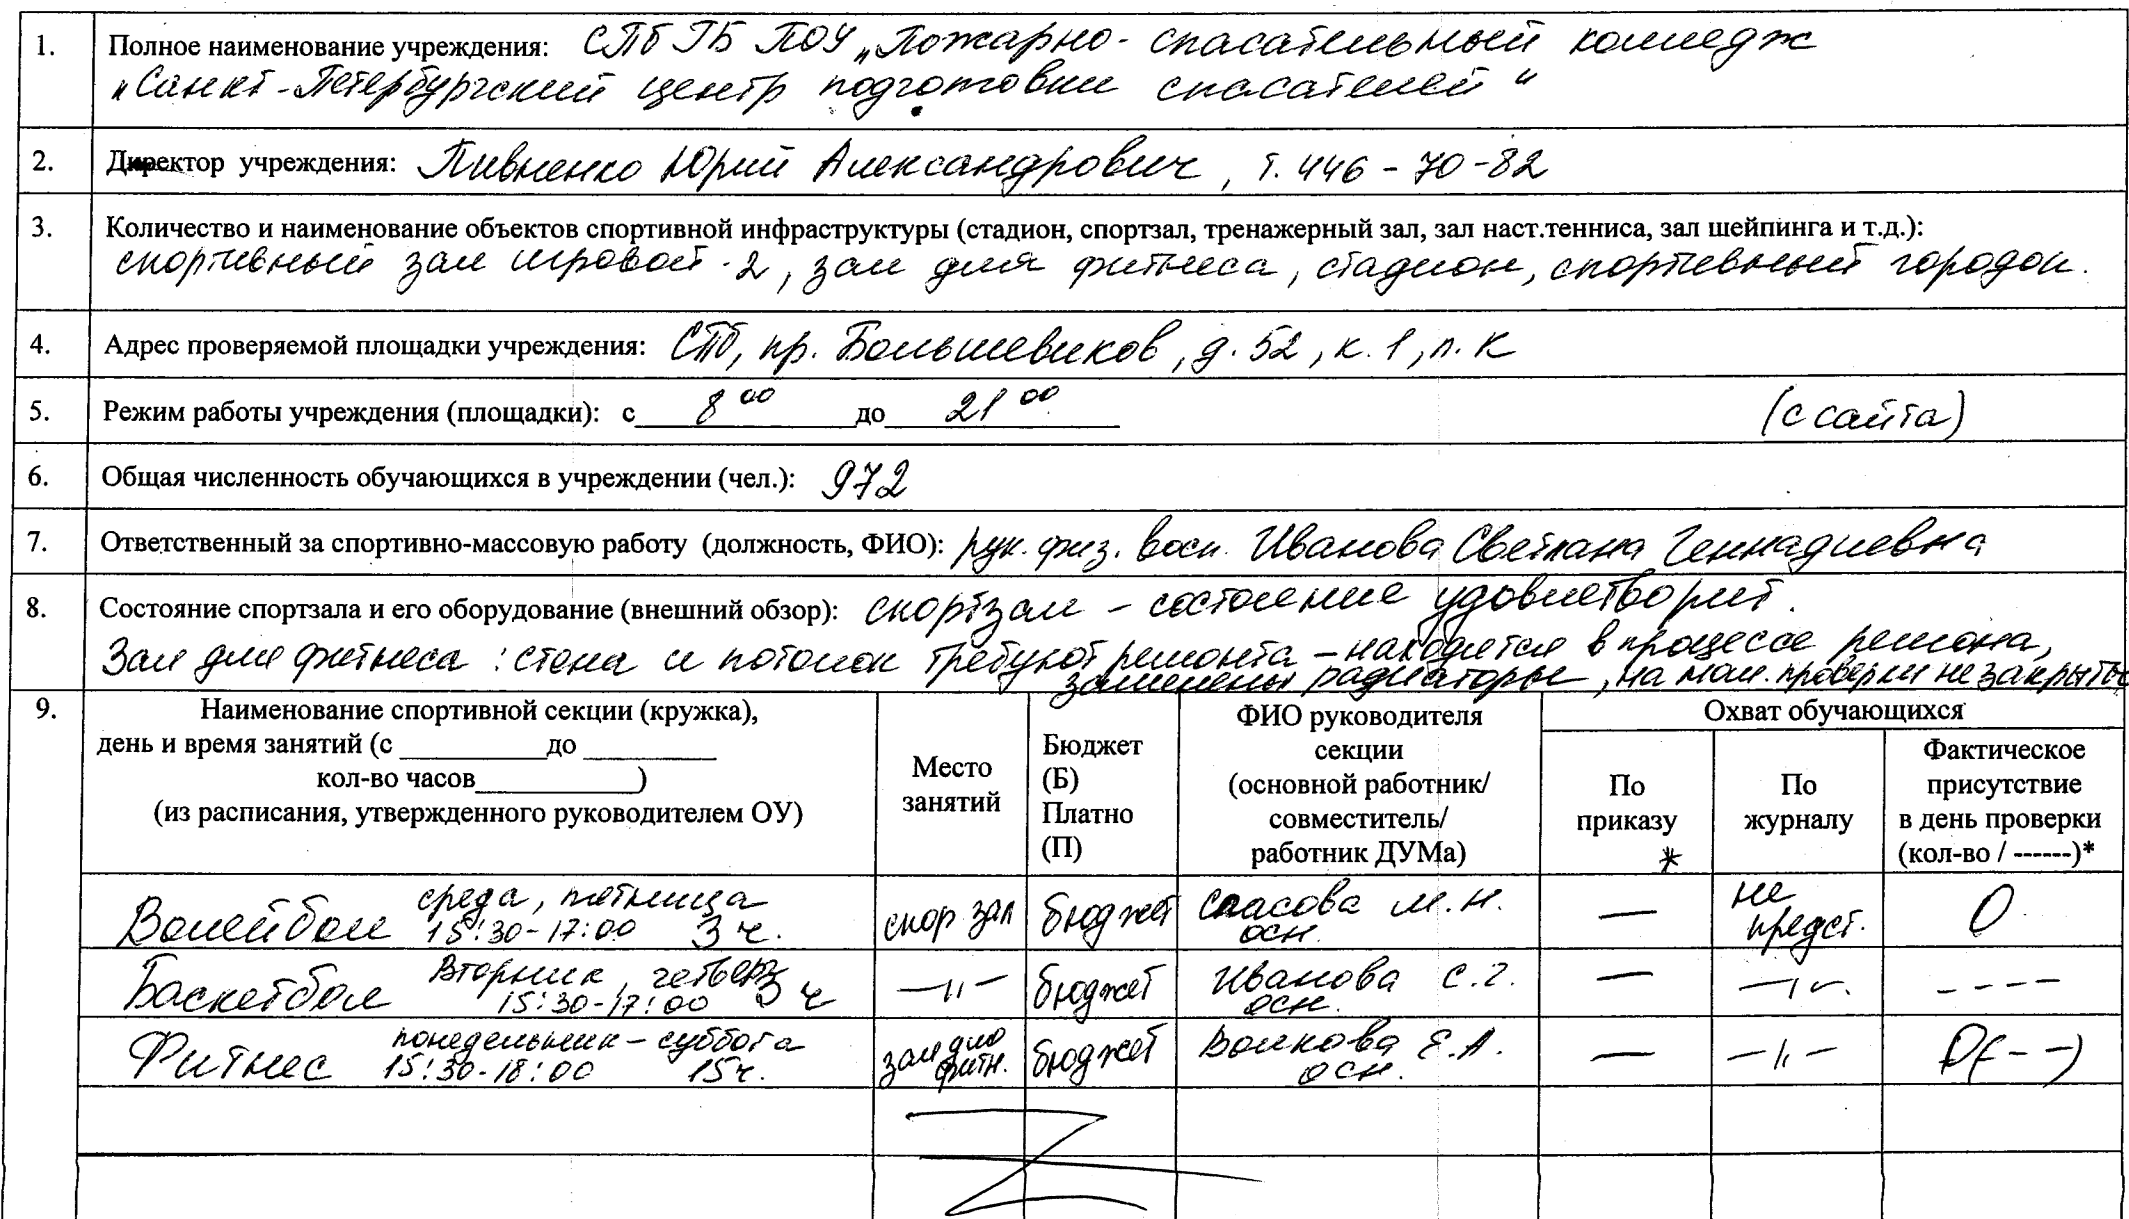 1. Полное наименование учреждения: СПб ГБ ПОУ „Пожарно-спасательный колледж
„Санкт-Петербургский центр подготовки спасателей“
2. Директор учреждения: Пивненко Юрий Александрович, т. 446-70-82
3. Количество и наименование объектов спортивной инфраструктуры (стадион, спортзал, тренажерный зал, зал наст.тенниса, зал шейпинга и т.д.):
спортивный зал игровой - 2, зал для фитнеса, стадион, спортивный городок.
4. Адрес проверяемой площадки учреждения: СПб, пр. Большевиков, д. 52, к. 1, л. К
5. Режим работы учреждения (площадки): с 8 00 до 21 00 (с сайта)
6. Общая численность обучающихся в учреждении (чел.): 972
7. Ответственный за спортивно-массовую работу (должность, ФИО): рук. физ. восп. Иванова Светлана Геннадиевна
8. Состояние спортзала и его оборудование (внешний обзор): спортзал – состояние удовлетворит.
Зал для фитнеса : стена и потолок требуют ремонта – находится в процессе ремона,
заменены радиаторы, на мом. проверки не закрыты
9. Наименование спортивной секции (кружка),
день и время занятий (с ________ до ________
кол-во часов________)
(из расписания, утвержденного руководителем ОУ)
Место
занятий
Бюджет
(Б)
Платно
(П)
ФИО руководителя
секции
(основной работник/
совместитель/
работник ДУМа)
Охват обучающихся
По
приказу
*
По
журналу
Фактическое
присутствие
в день проверки
(кол-во / ------)*
Волейбол среда, пятница
15:30-17:00 3 ч.
спор зал
бюджет
Спасова М.Н.
осн.
—
не
предст.
0
Баскетбол Вторник, четверг
15:30-17:00 3 ч
—"—
бюджет
Иванова С.Г.
осн.
—
—"—.
- - - -
Фитнес понедельник – суббота
15:30-18:00 15ч.
зал для
фитн.
бюджет
Волкова Е.А.
осн.
—
—"—
0(- -)